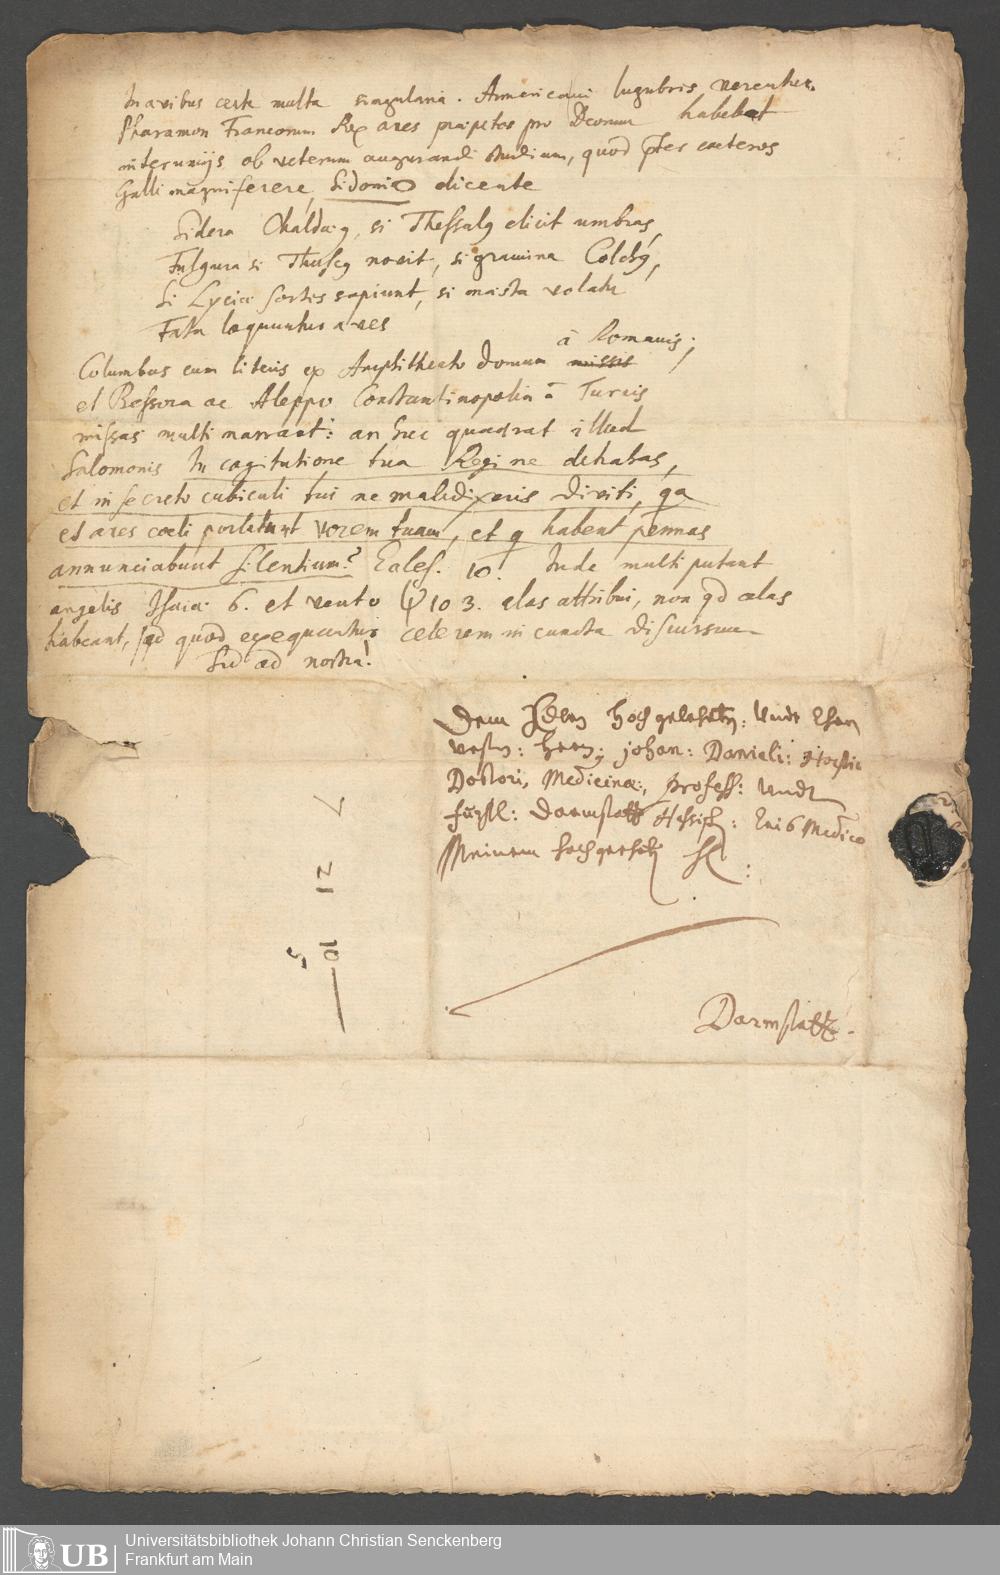 In avibus certe multa singularia. Americani lugubris verentur.
Pharamon Francorum Rex aves praepetes pro Deorum habebat
internunciis ob veterum augurandi studium, quod pter caeteros
Galli magnifecere, Sidonio dicente
Sidera Chaldaeg, si Thessalg elicit umbras,
Fulgura si Thuscg novit, si gramina Colchg,
Si Lyciae sortes sapiunt, si maesta volatu
Fata loquuntur aves
Columbas cum literis ex Amphitheatro domum missis à Romanis;
et Bessora ac Aleppo Constantinopolin à Turcis
missas multi narrant: an huc quadrat illud
Salomonis In cogitatione tua Regi ne detrahas,
et in secreto cubiculi tui ne maledixeris diviti, qa
et aves coeli portabunt vocem tuam, et q habent pennas
annunciabunt silentium? Eccles. 10. Inde multi putant
angelis Isaiae 6. et vento ψ 103. alas attribui, non qd alas
habeant, sed quod exequantur celerem in cuncta discursum
Sed ad nostra!
Dem Edlen hochgelehrten: Undt Ehren
vesten: Herrn: Johan: Danieli: Horstio
Doctori, Medicinae, profess: Undt
fürstl: Darmstatt Hessisch: Leib Medico
Meinem hochgeehrten H:
7
12
10
5
Darmstatt.
Universitätsbibliothek Johann Christian Senckenberg
Frankfurt am Main
UB